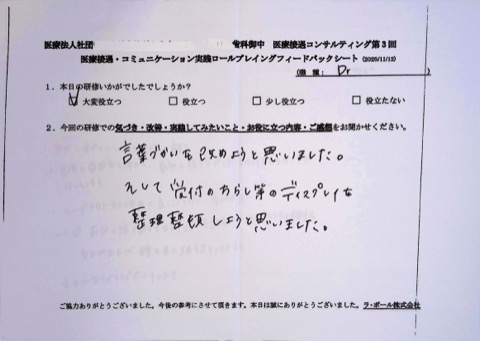 医療法人社団 歯科御中 医療接遇コンサルティング第3回
医療接遇・コミュニケーション実践ロールプレイングフィードバックシート (2025/11/12)
(職種: Dr )
1. 本日の研修いかがでしたでしょうか?
大変役立つ □ 役立つ □ 少し役立つ □ 役立たない
2. 今回の研修での気づき・改善・実践してみたいこと・お役に立つ内容・ご感想をお聞かせください。
言葉づかいを改めようと思いました。
そして受付のちらし等のディスプレイを
整理整頓しようと思いました。
ご協力ありがとうございました。今後の参考にさせて頂きます。本日は誠にありがとうございました。ラ・ポール株式会社